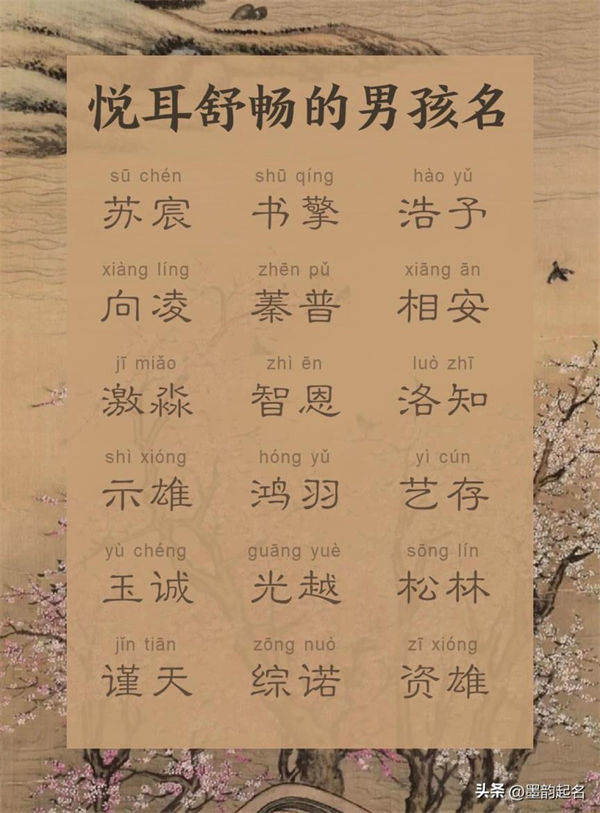 悦耳舒畅的男孩名
sū chén shū qíng hào yǔ
苏宸 书擎 浩予
xiàng líng zhēn pǔ xiāng ān
向凌 蓁普 相安
jī miǎo zhì ēn luò zhī
激淼 智恩 洛知
shì xióng hóng yǔ yì cún
示雄 鸿羽 艺存
yù chéng guāng yuè sōng lín
玉诚 光越 松林
jǐn tiān zōng nuò zī xióng
谨天 综诺 资雄
头条 @墨韵起名